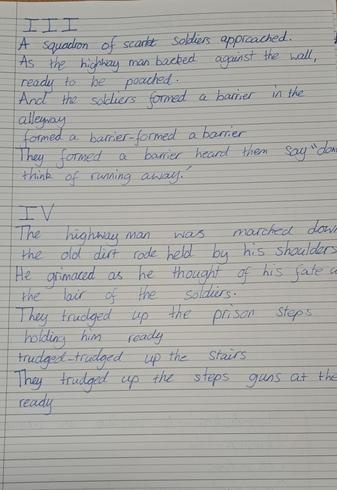 III
A squadron of scarlet soldiers approached.
As the highway man backed against the wall,
ready to be poached.
And the soldiers formed a barrier in the
alleyway
formed a barrier-formed a barrier
They formed a barrier heard them say "don
think of running away."
IV
The highway man was marched down
the old dirt rode held by his shoulders
He grimaced as he thought of his fate
the lair of the soldiers.
They trudged up the prison steps
holding him ready
trudged-trudged up the stairs
They trudged up the steps guns at the
ready